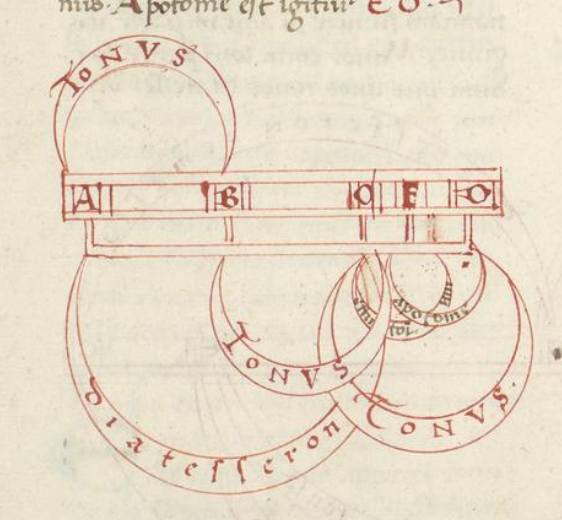 nus. Apotome est igitur E O.
TONVS
A B O E O
TONVS
apotome
TONVS
diatesseron